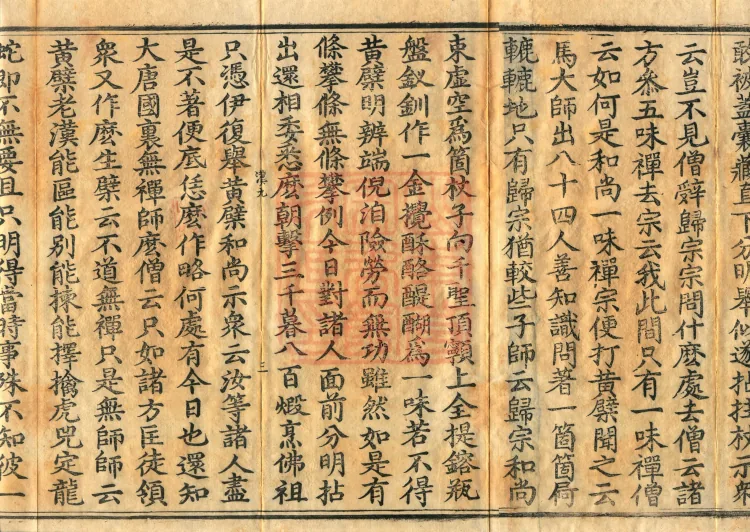 云豈不見僧辤歸宗宗問什麽處去僧云諸
方叅五味禪去宗云我此間只有一味禪僧
云如何是和尚一味禪宗便打黃蘗聞之云
馬大師出八十四人善知識問著一箇箇屙
轆轆地只有歸宗猶較些子師云歸宗和尚
東虛空爲箇杖子向千聖頂𩕳上全提鎔瓶
盤釵釧作一金攪酥酪醍醐爲一味若不得
黃蘗明辨端倪洎險勞而無功雖然如是有
條攀條無條攀例今日對諸人面前分明拈
出還相委悉麽朝擊三千暮八百煅烹佛祖
只憑伊復舉黃蘗和尚示衆云汝等諸人盡
漢九
三
是不著便底恁麽作略何處有今日也還知
大唐國裏無禪師麽僧云只如諸方匡徒領
衆又作麽生蘗云不道無禪只是無師師云
黃蘗老漢能區能別能揀能擇擒虎兕定龍
蛇即不無要且只明得當時事殊不知彼一